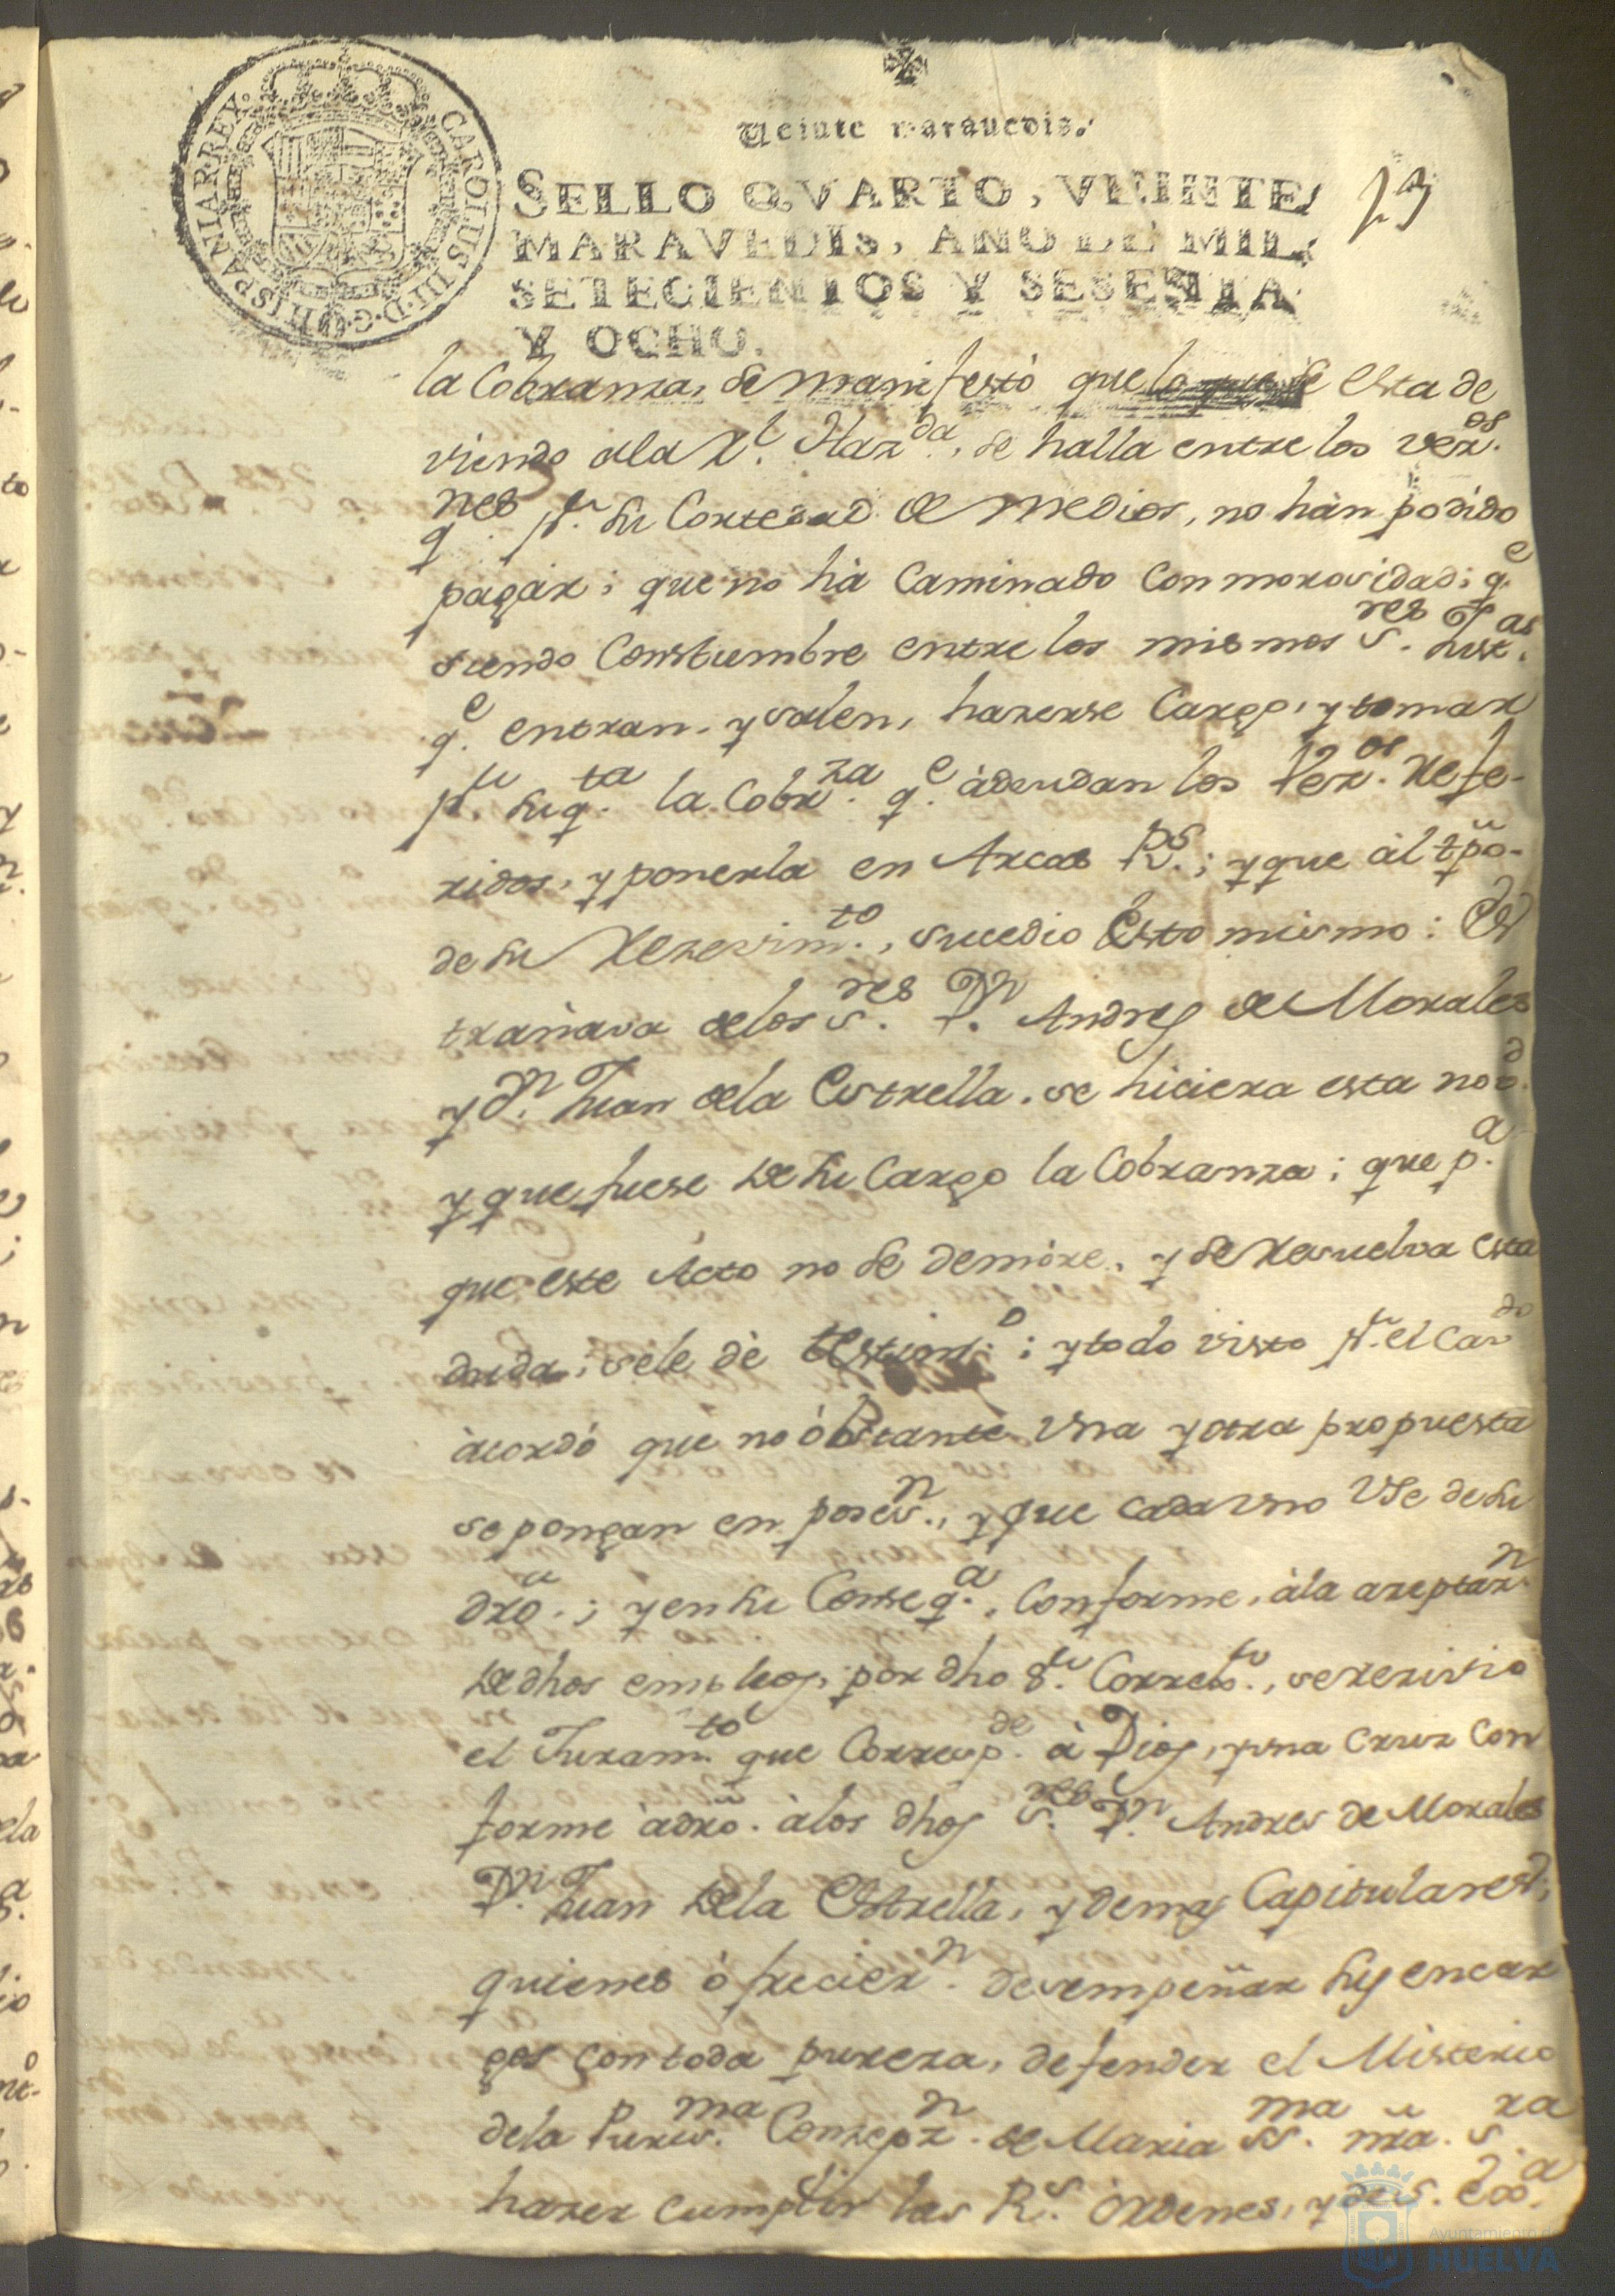 Veinte maravedis.
SELLO QVARTO, VEINTE
MARAVEDIS, AÑO DE MIL
SETECIENTOS Y SESENTA
Y OCHO.
CAROLUS III D.G. HISPANIAR. REX
la Cobranza, se manifestò que lo que se esta de
viendo ala Rl. Hazda., se halla entre los vezos.
qnes pr. su Cortedad de medios, no hàn podido
pagàr; que no hà Caminado con morosidad; qe.
siendo Constumbre entre los mismos Sres. Justas.
qe. entran, y salen, hazerse Cargo, y tomar
pr. su qta. la Cobrza. qe. àdeudan los Vezos. Refe-
ridos, y ponerla en Arcas Rs.; y que àl tpõ.
de su Rezevimto., sucedio Esto mismo: Es
trañava delos Sres. Dn. Andres de Morales
y Dn. Juan dela Estrella, se hiciera esta novd.
y que fuese de su Cargo la Cobranza; que pa.
que este Acto no se demòre, y se Resuelva esta
duda; sele dè testimo.; y todo visto pr. el Cavdo
àcordó que no òbstante vna y otra propuesta
se pongan en posesn., y que cada vno Vse de su
dro.; y en su Conseqa., Conforme, àla azeptazn.
de dhos empleos, por dho Sr. Correxr., se rezivio
el Juramto. que Correspde. à Dios, y vna Cruz Con
forme àdro. àlos dhos Sres. Dn. Andres de Morales
Dn. Juan dela Estrella, y demas Capitulares;
quienes òfreciern. desempeñar sus encar
gos con toda pureza, defender el Misterio
dela Purisma. Conzepzn. de Maria SSma. nrã. Sra.
hazer cumplir las Rs. òrdenes, y de S. Exa.
Ayuntamiento de
HUELVA